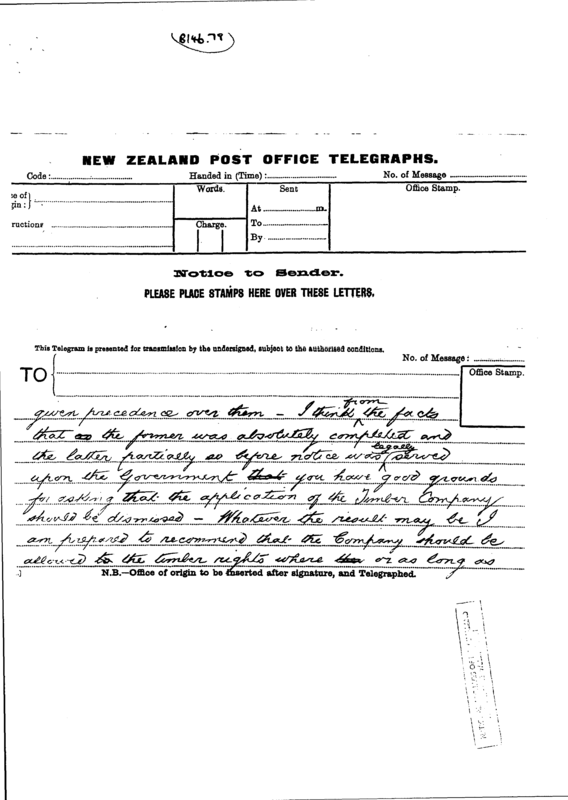 8146.79
NEW ZEALAND POST OFFICE TELEGRAPHS.
Code: Handed in (Time): No. of Message
Words. Sent Office Stamp.
e of
gin: At m.
ructions Charge. To
By
Notice to Sender.
PLEASE PLACE STAMPS HERE OVER THESE LETTERS.
This Telegram is presented for transmission by the undersigned, subject to the authorised conditions.
No. of Message:
TO Office Stamp.
from
given precedence over them – I think the facts
that as the former was absolutely completed and
legally
the latter partially so before notice was served
upon the Government that you have good grounds
for asking that the application of the Timber Company
should be dismissed – Whatever the result may be I
am prepared to recommend that the Company should be
allowed to the timber rights where or as long as
N.B.—Office of origin to be inserted after signature, and Telegraphed.